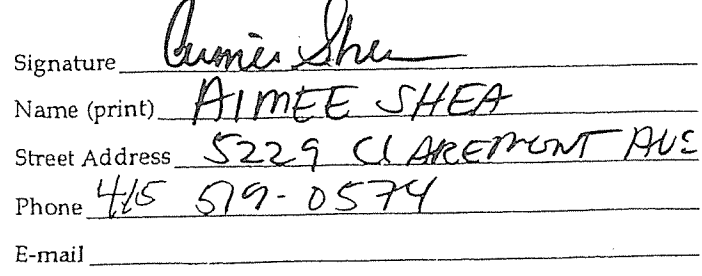 Signature Aimee Shea
Name (print) AIMEE SHEA
Street Address 5229 ClAREMONT AVE
Phone 415 519-0574
E-mail